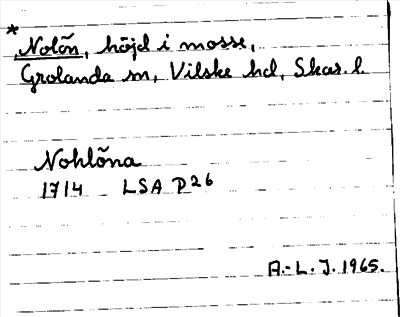 * Nolõn, höjd i mosse,
Grolanda sn, Vilske hd, Skar. l.
Nohlõna
1714 LSA P26
A.-L. J. 1965.